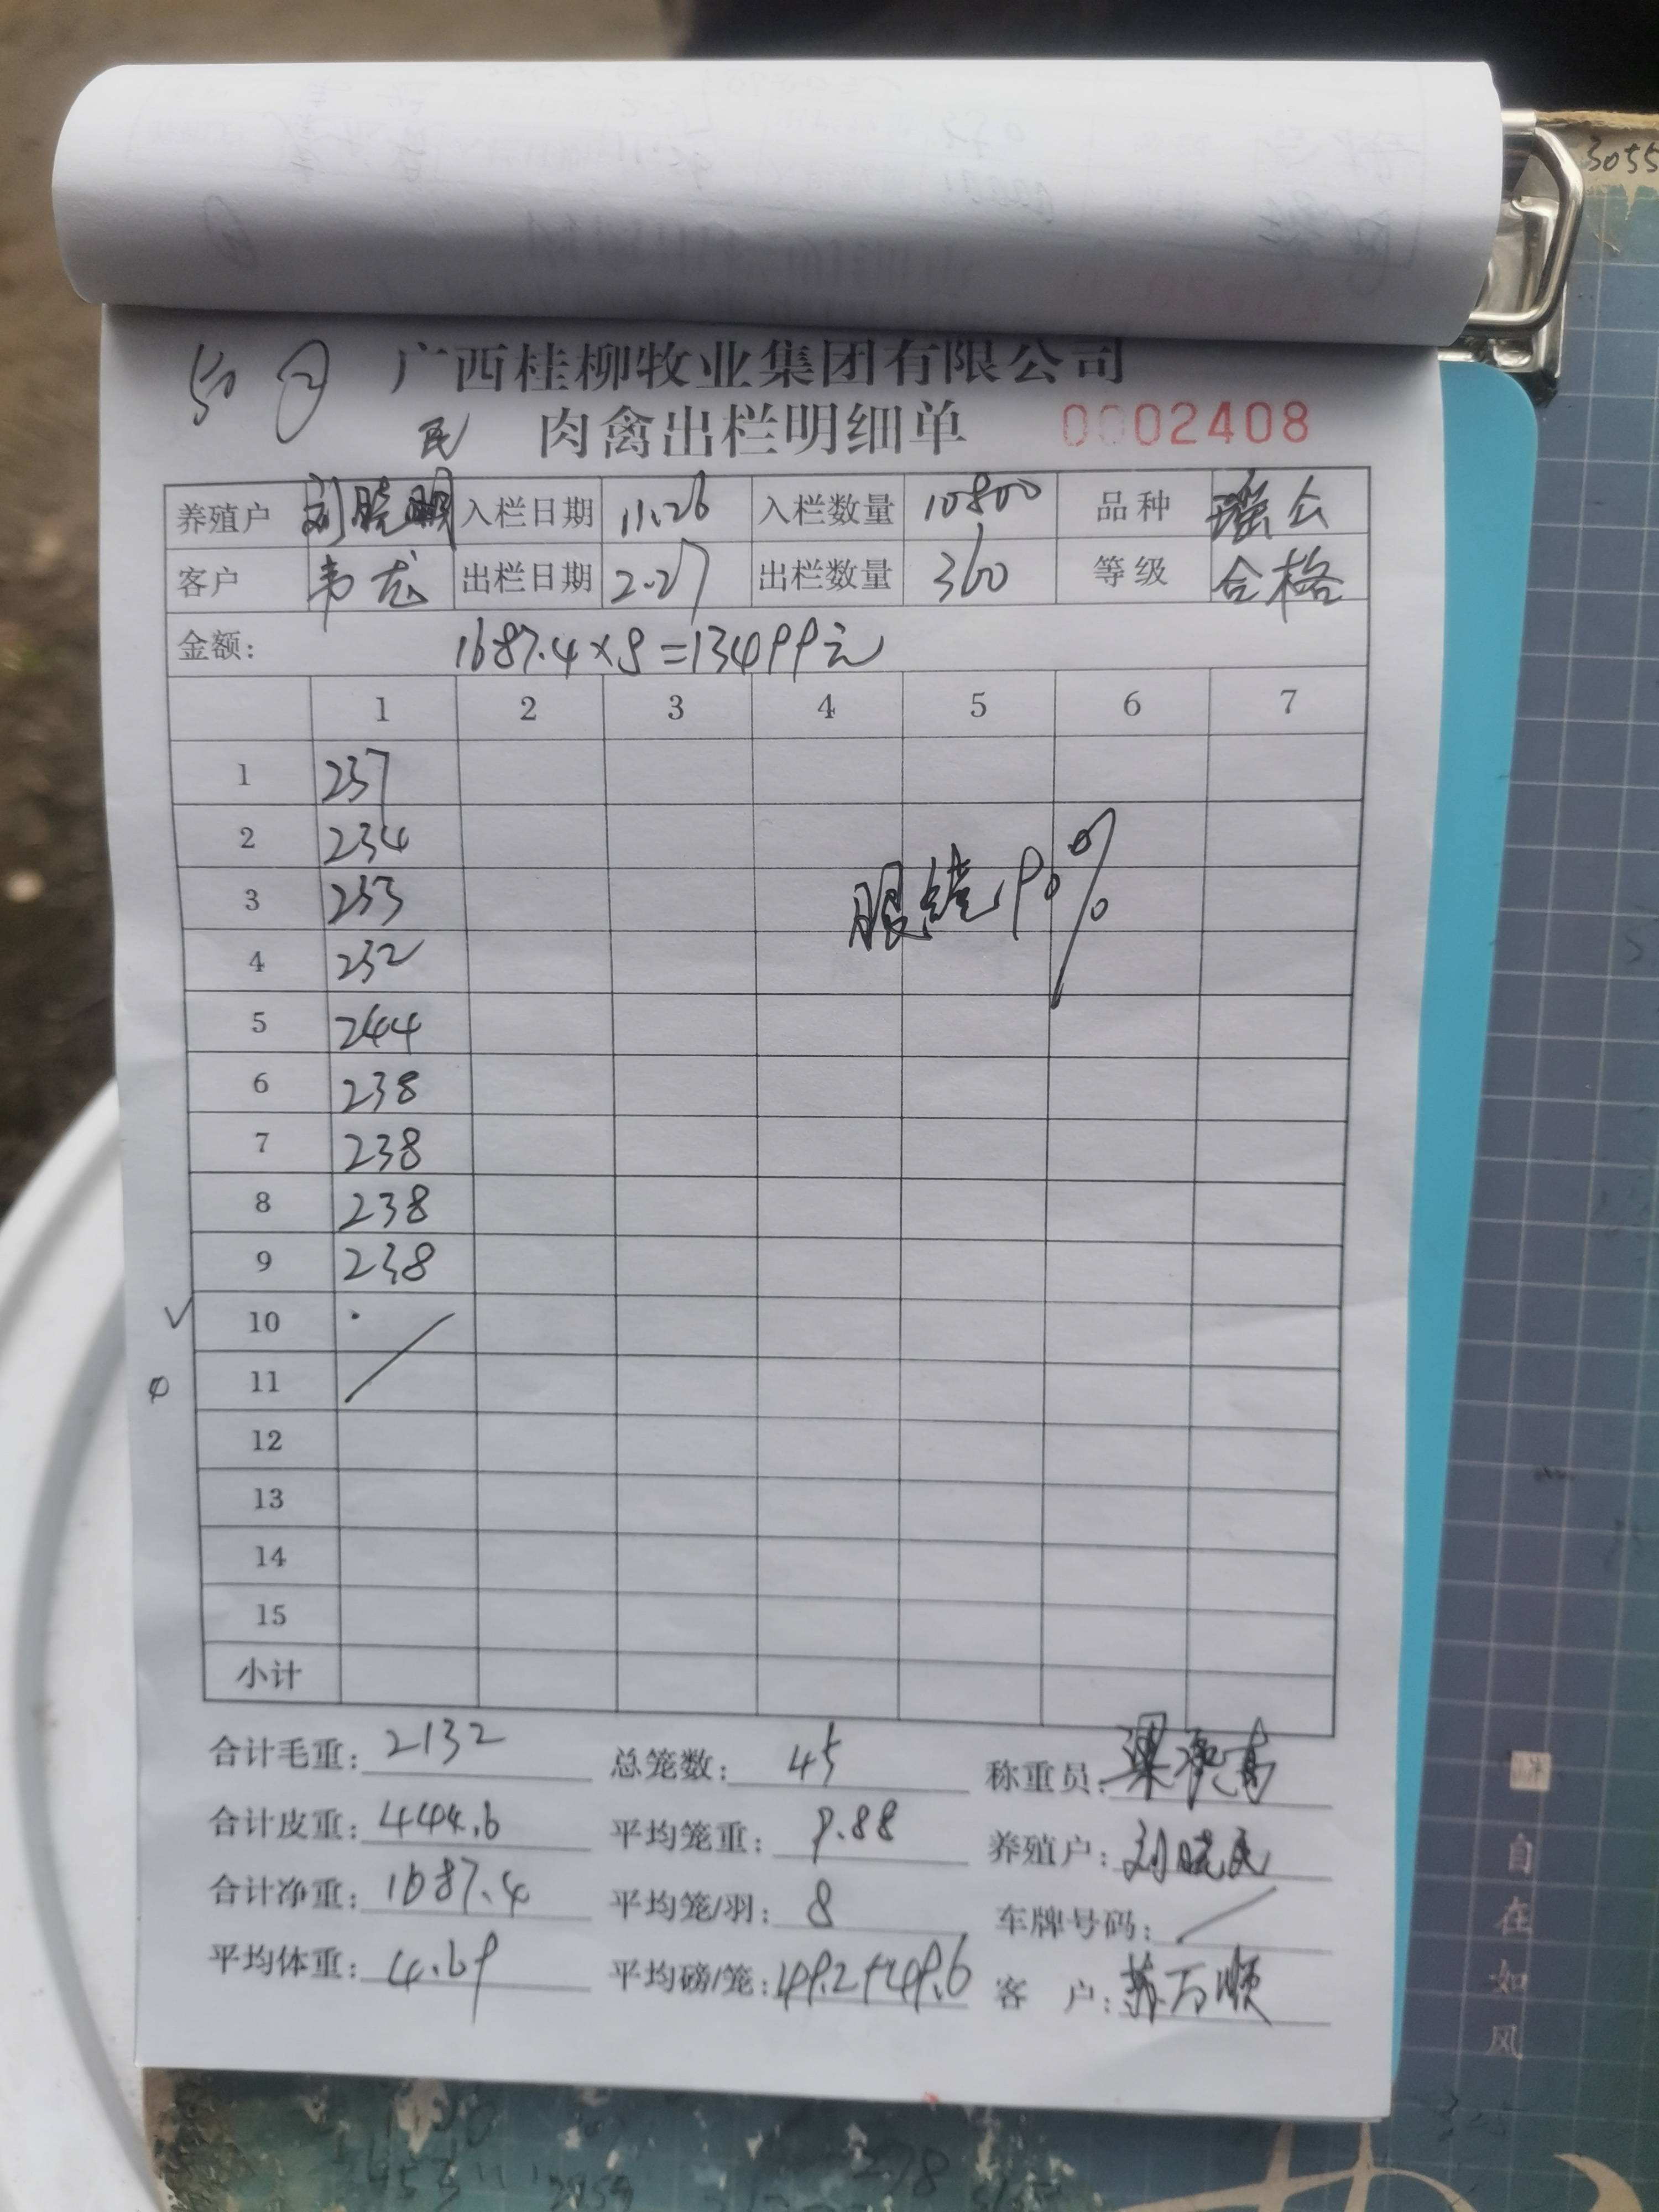 3055
广西桂柳牧业集团有限公司
民 肉禽出栏明细单 0002408
养殖户 刘晓 入栏日期 11.26 入栏数量 10800 品种 瑶公
客户 韦龙 出栏日期 2.27 出栏数量 360 等级 合格
金额: 1687.4×8=13499元
1 2 3 4 5 6 7
1 237
2 234
3 233
4 232
5 244
6 238
7 238
8 238
9 238
眼镜90%
10
11
12
13
14
15
小计
合计毛重: 2132 总笼数: 45 称重员:
合计皮重: 444.6 平均笼重: 9.88 养殖户: 刘晓民
合计净重: 1687.4 平均笼/羽: 8 车牌号码: /
平均体重: 4.69 平均磅/笼: 49.2+49.6 客 户: 苏万顺
自在如风